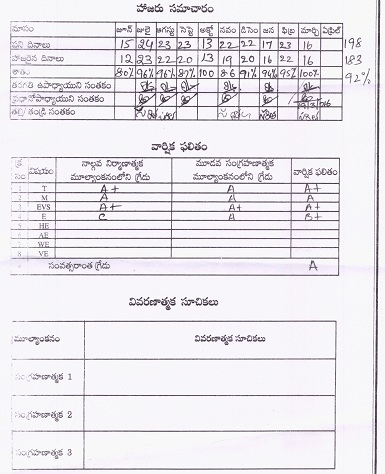 హాజరు సమాచారం
మాసం జూన్ జులై ఆగస్టు సెప్టె అక్టో నవం డిసెం జన ఫిబ్ర మార్చి ఏప్రిల్
పని దినాలు 15 24 23 23 13 22 22 17 23 16 198
హాజరైన దినాలు 12 23 22 20 13 19 20 16 22 16 183
శాతం 80% 96% 96% 87% 100 86 91% 94% 95% 100% 92%
తరగతి ఉపాధ్యాయుని సంతకం
ప్రధానోపాధ్యాయుని సంతకం
తల్లి/ తండ్రి సంతకం
వార్షిక ఫలితం
క్ర సం విషయం నాల్గవ నిర్మాణాత్మక మూల్యాంకనంలోని గ్రేడు మూడవ సంగ్రహణాత్మక మూల్యాంకనంలోని గ్రేడు వార్షిక ఫలితం
1 T A+ A A+
2 M A A A
3 EVS A+ A+ A+
4 E C A B+
5 HE
6 AE
7 WE
8 VE
సంవత్సరాంత గ్రేడు A
వివరణాత్మక సూచికలు
మూల్యాంకనం వివరణాత్మక సూచికలు
సంగ్రహణాత్మక 1
సంగ్రహణాత్మక 2
సంగ్రహణాత్మక 3